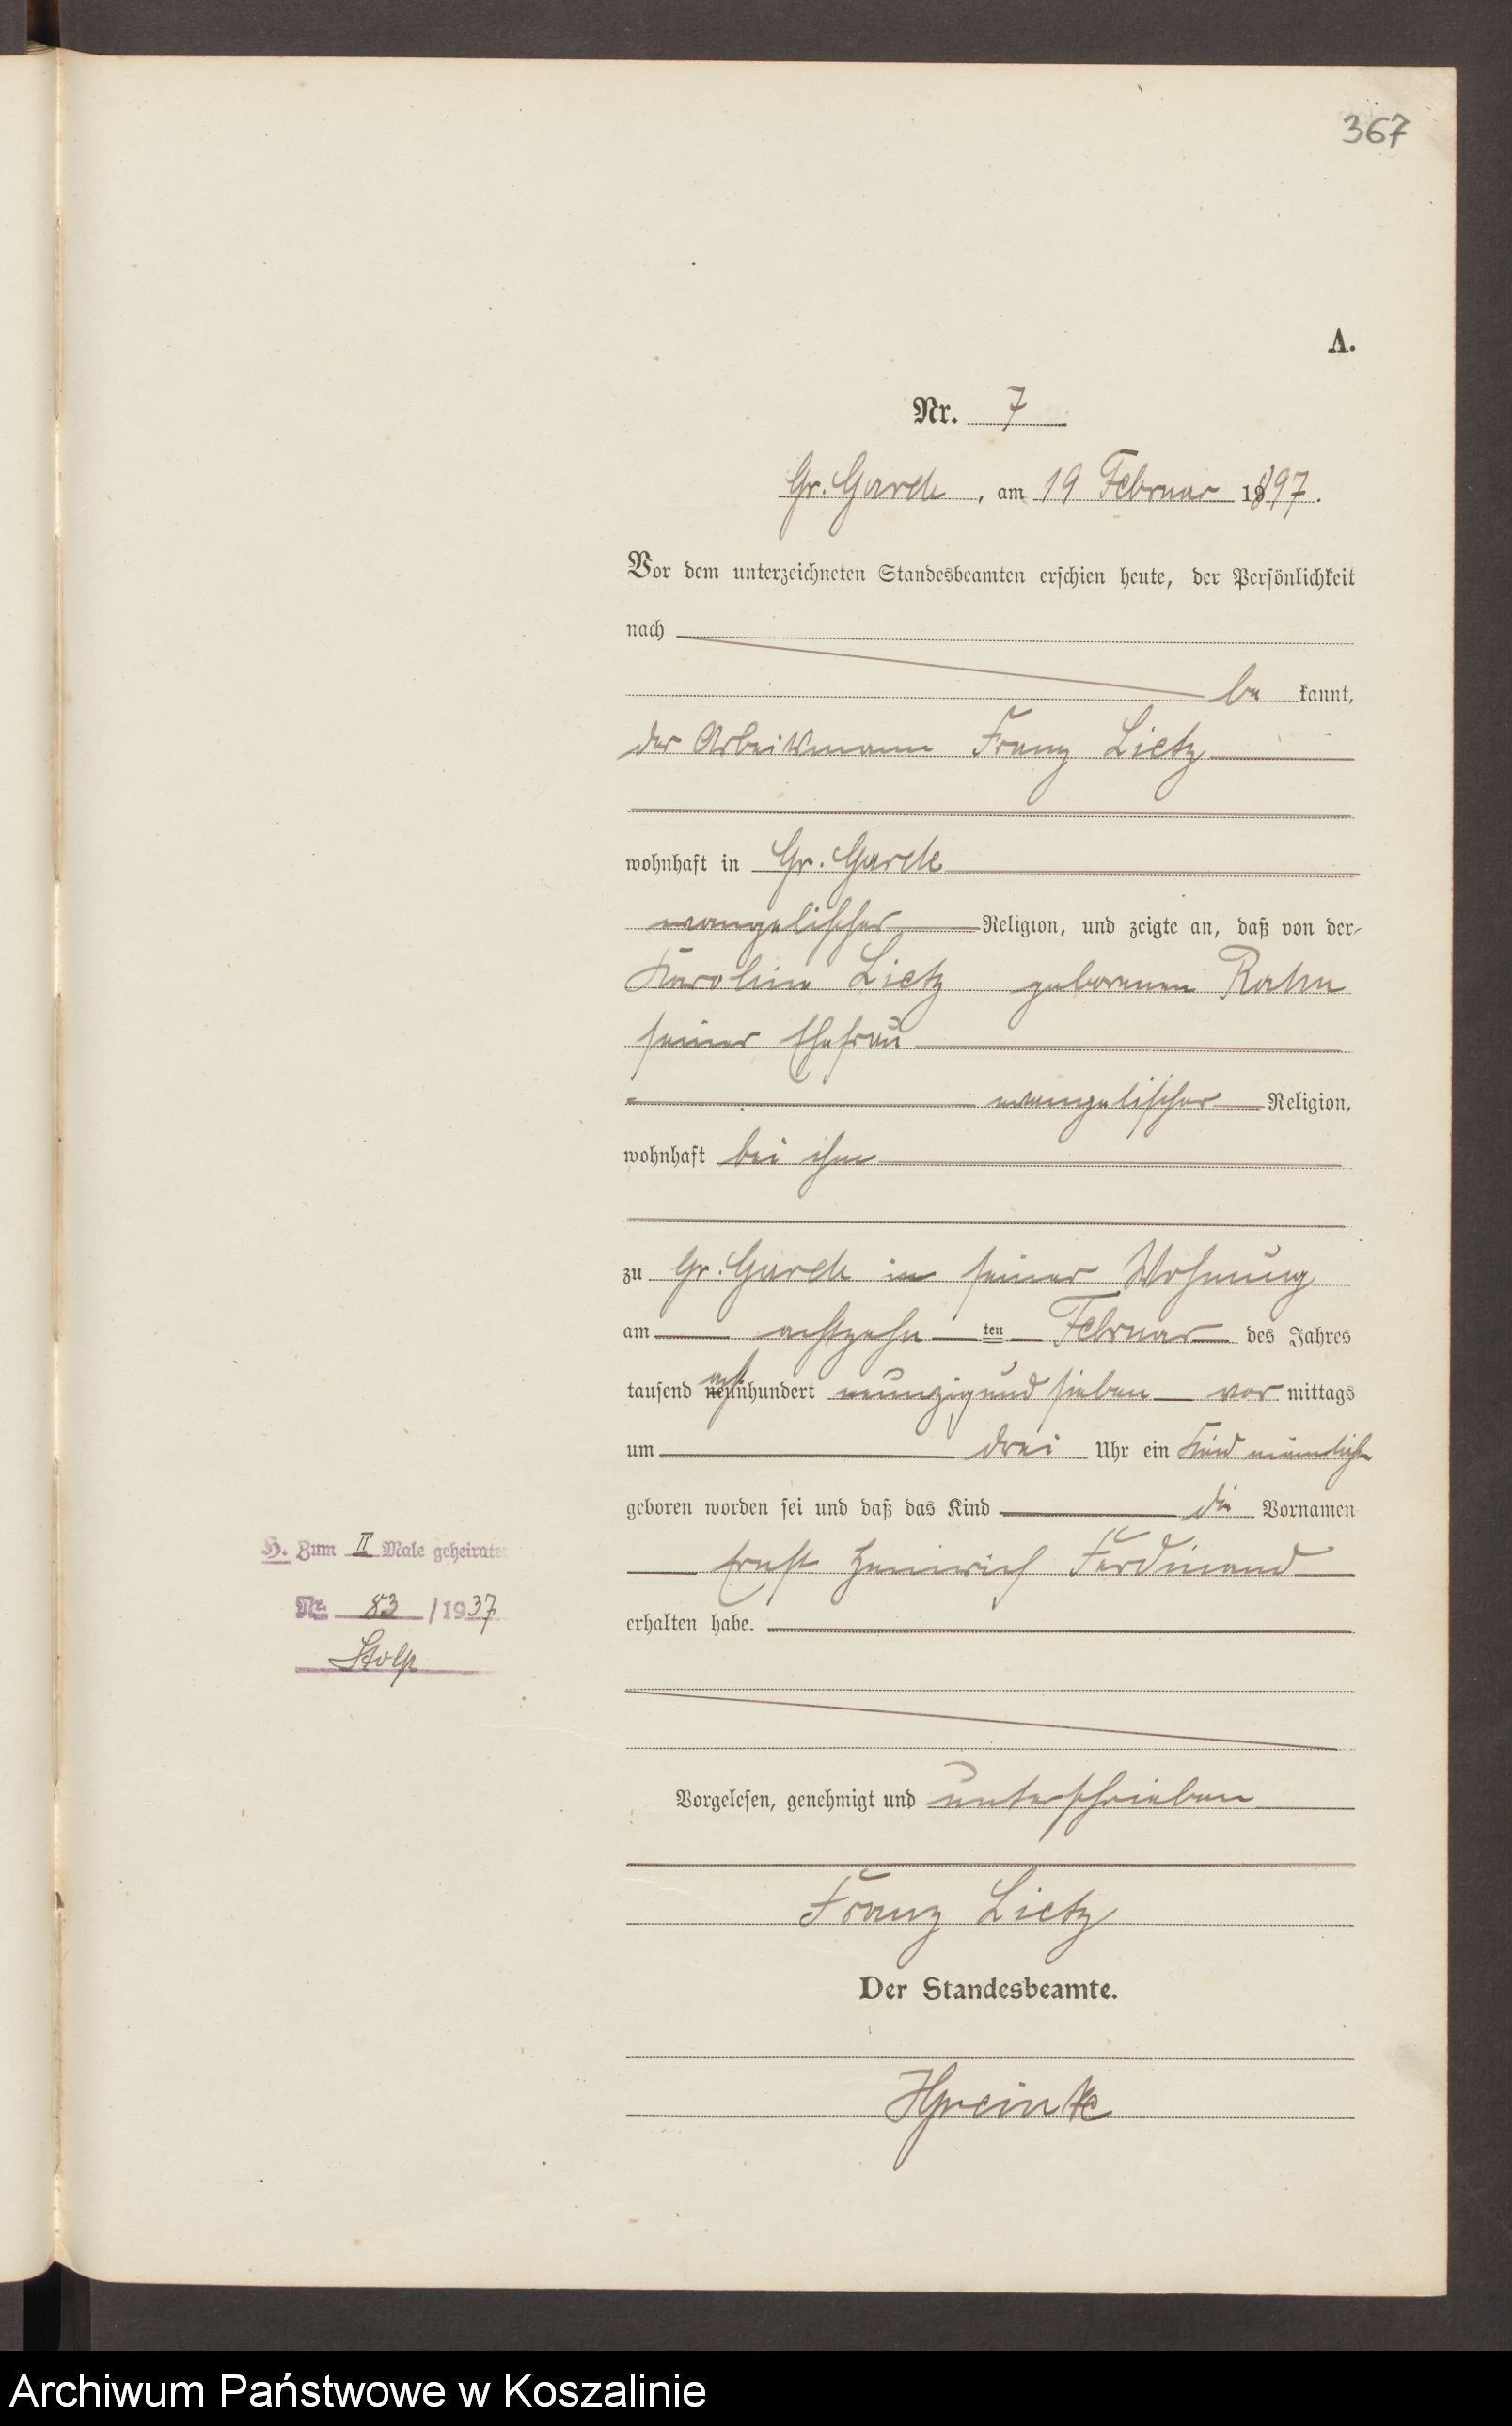 367
A.
Nr. 7
Gr. Garde, am 19 Februar 1897.
Vor dem unterzeichneten Standesbeamten erschien heute, der Persönlichkeit
nach
be kannt,
der Arbeitsmann Franz Lietz
wohnhaft in Gr. Garde
evangelischer Religion, und zeigte an, daß von der
Karoline Lietz geborenen Rahn
seiner Ehefrau
evangelischer Religion,
wohnhaft bei ihm
zu Gr. Garde in seiner Wohnung
am achtzehn ten Februar des Jahres
tausend acht hundert neunzig und sieben vor mittags
um drei Uhr ein Kind männlichen
geboren worden sei und daß das Kind die Vornamen
Ernst Heinrich Ferdinand
erhalten habe.
H. Zum II Male geheiratet
Nr. 83 / 1937
Stolp
Vorgelesen, genehmigt und unterschrieben
Franz Lietz
Der Standesbeamte.
Archiwum Państwowe w Koszalinie